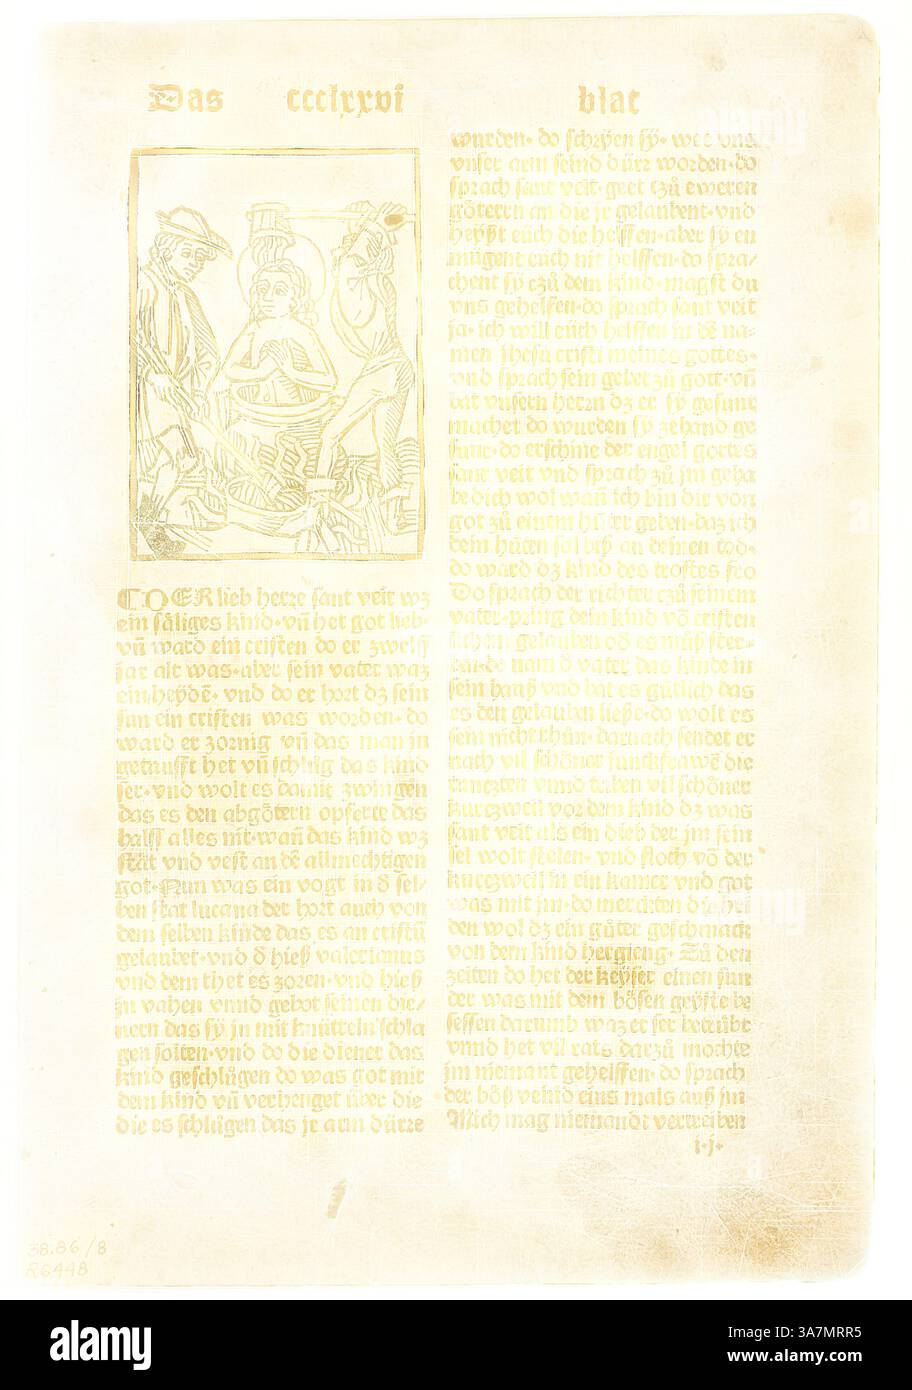 Das ccclxxvi blat
DER lieb herre sant veit wz
ein säliges kind· vn̄ het got lieb·
vn̄ ward ein cristen do er zwelff
jar alt was· aber sein vater waz
ein heydē· vnd do er hort dz sein
sun ein cristen was worden· do
ward er zornig vn̄ das man jn
getaufft het vn̄ schlůg das kind
ser· vnd wolt es damit zwingen
das es den abgötern opferte das
halff alles nit· wan̄ das kind wz
stät vnd vest an dē allmechtigen
got· Nun was ein vogt in d̄ sel/
ben stat lucana der hort auch von
dem selben kinde das es an cristū
gelaubet· vnd d̄ hieß valerianus
vnd dem thet es zoren· vnd hieß
jn vahen vnnd gebot seinen die/
nern das sy jn mit knütteln schla
gen solten· vnd do die diener das
kind geschlůgen do was got mit
dem kind vn̄ verhenget über die
die es schlůgen das jr arm dürre
wurden· do schryen sy· wee vns
vnser arm seind dürr worden· do
sprach sant veit· geet czů eweren
götern an die jr gelaubent· vnd
heyßt eüch die helffen· aber sy en
mügent eüch nit helffen· do spra/
chent sy czů dem kind· magst du
vns gehelfen· do sprach sant veit
ja· ich will eüch helffen in dē na/
men jhesu cristi meines gottes·
vnd sprach sein gebet zů got· vn̄
bat vnsern herrn dz er sy gesunt
machet do wurden sy zehand ge
sunt· do erschine der engel gottes
sant veit vnd sprach zů jm geha
be dich wol wan̄ ich bin dir von
got zů einem hütter geben· daz ich
dein hütten sol biß an deinen tod·
do ward dz kind des trostes fro
Do sprach der richter czů seinem
vater· pring dein kind vō cristen
lichem gelauben od̄ es můß ster/
ben· do nam d̄ vater das kinde in
sein hauß vnd bat es gütlich das
es den gelauben ließe· do wolt es
sein nicht thůn· darnach sendet er
nach vil schöner junckfrawē die
tanczten vnnd triben vil schöner
kurczweil vor dem kind dz was
sant veit als ein dieb der jm sein
sel wolt stelen· vnd floch vō der
kurczweil in ein kamer vnd got
was mit jm· do merckten die hei
den wol dz ein gůter geschmack
von dem kind hergieng· Zů den
zeiten do het der keyser einen sun
der was mit dem bösen geyste be
sessen darumb waz er ser betrübt
vnnd het vil rats darzů mochte
jm niemant gehelffen· do sprach
der böß veind eins mals auß jm
Mich mag niemandt vertreiben
i·j·
38.86/8
R6448
alamy
Image ID: 3A7MRR5
www.alamy.com